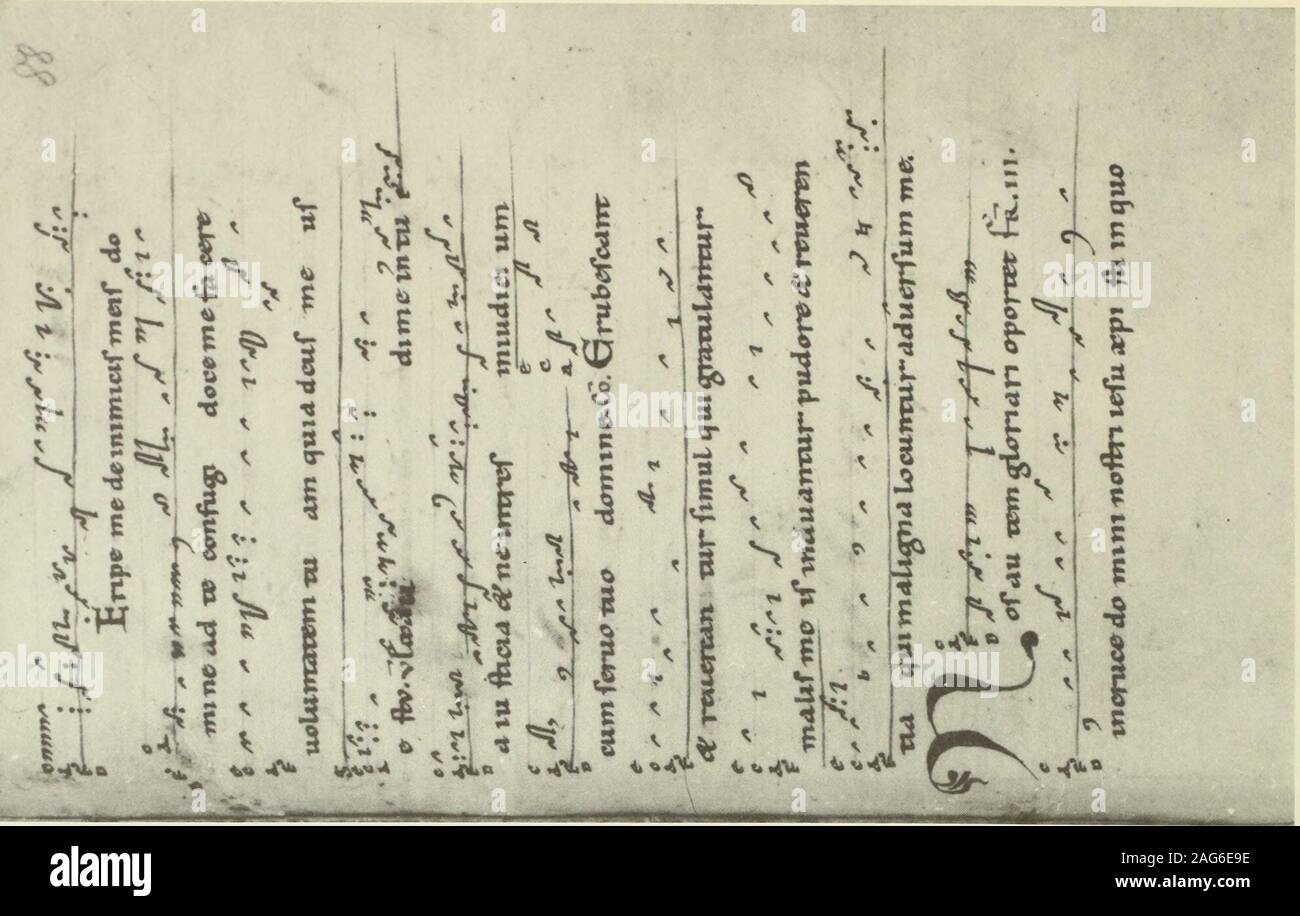 88
Eripe me deinimicis meis do
mi ne ad te confugi doce me fa cere
uolumtatem tu am quia deus me us
es tu
dime in tu
a iu sticia & ne intres iniudici um
cum seruo tuo domine. Co. Erubescant
& reuerean tur simul qui gratulantur
malis me is induantur pudore & reueren
tia qui maligna locuntur aduersum me.
Nos au tem gloriari oportet
incruce do mini nostri iesu xpi in quo
alamy
Image ID: 2AG6E9E
www.alamy.com